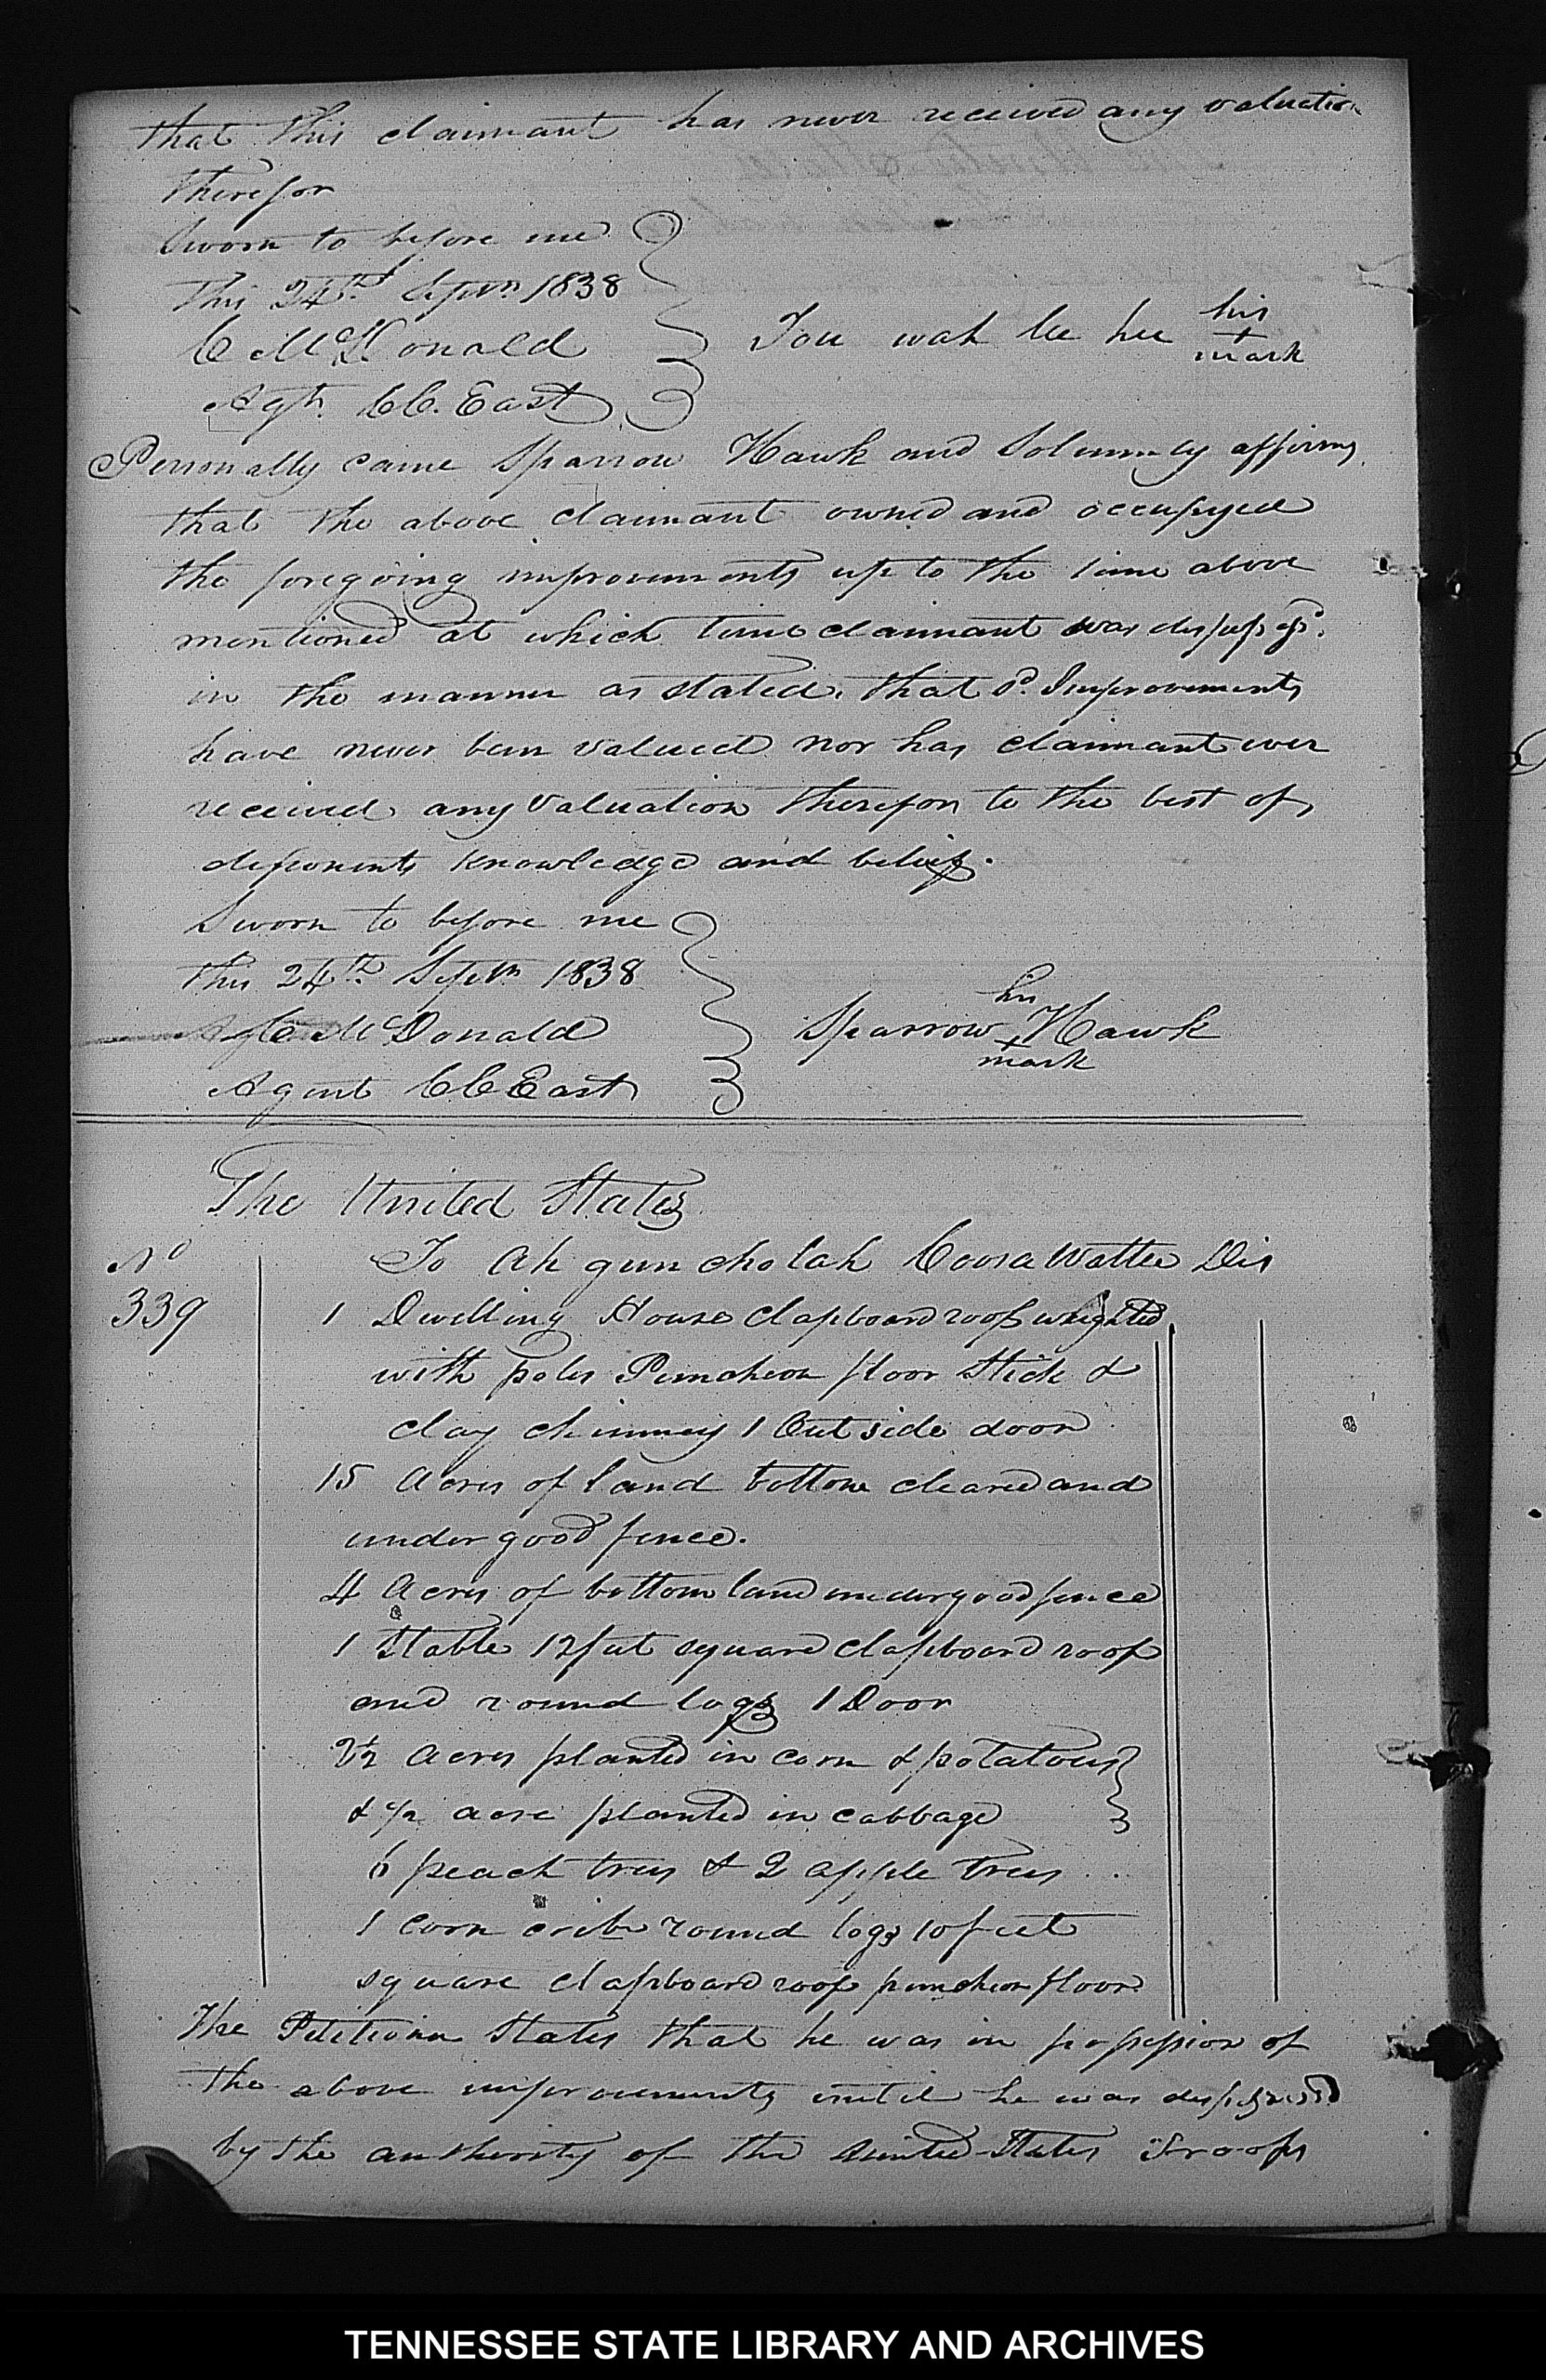 that this claimant has never received any valuation
therefor
Sworn to before me
this 24th Septr 1838
C McDonald
Agt. CC. East
You wah le hee his
+
mark
Personally came Sparrow Hawk and Solemnly affirms
that the above claimant owned and occupyed
the foregoing improvements up to the time above
mentioned at which time claimant was
in the manner as stated. that sd. Improvements
have never been valued nor has claimant ever
received any valuation therefor to the best of
deponents knowledge and belief.
Sworn to before me
this 24th Septm 1838
C McDonald
Agent CC East
his
Sparrow + Hawk
mark
The United States
To Ah gun cho lah Coosa Wattee Dis
No
339
1 Dwelling House clapboard roof weighted
with poles Puncheon floor Stick &
clay chimney 1 Out side door
15 Acres of land bottom cleared and
under good fence.
4 Acres of bottom land under good fence
1 Stable 12 feet square clapboard roof
and round logs 1 Door
2½ Acres planted in corn & potatoes
& ½ acre planted in cabbage
6 peach trees & 2 apple trees
1 Corn crib round logs 10 feet
square clapboard roof puncheon floor
The Petitioner States that he was in possession of
the above improvements until he was dispossessd
by the authority of the United States Troops
TENNESSEE STATE LIBRARY AND ARCHIVES